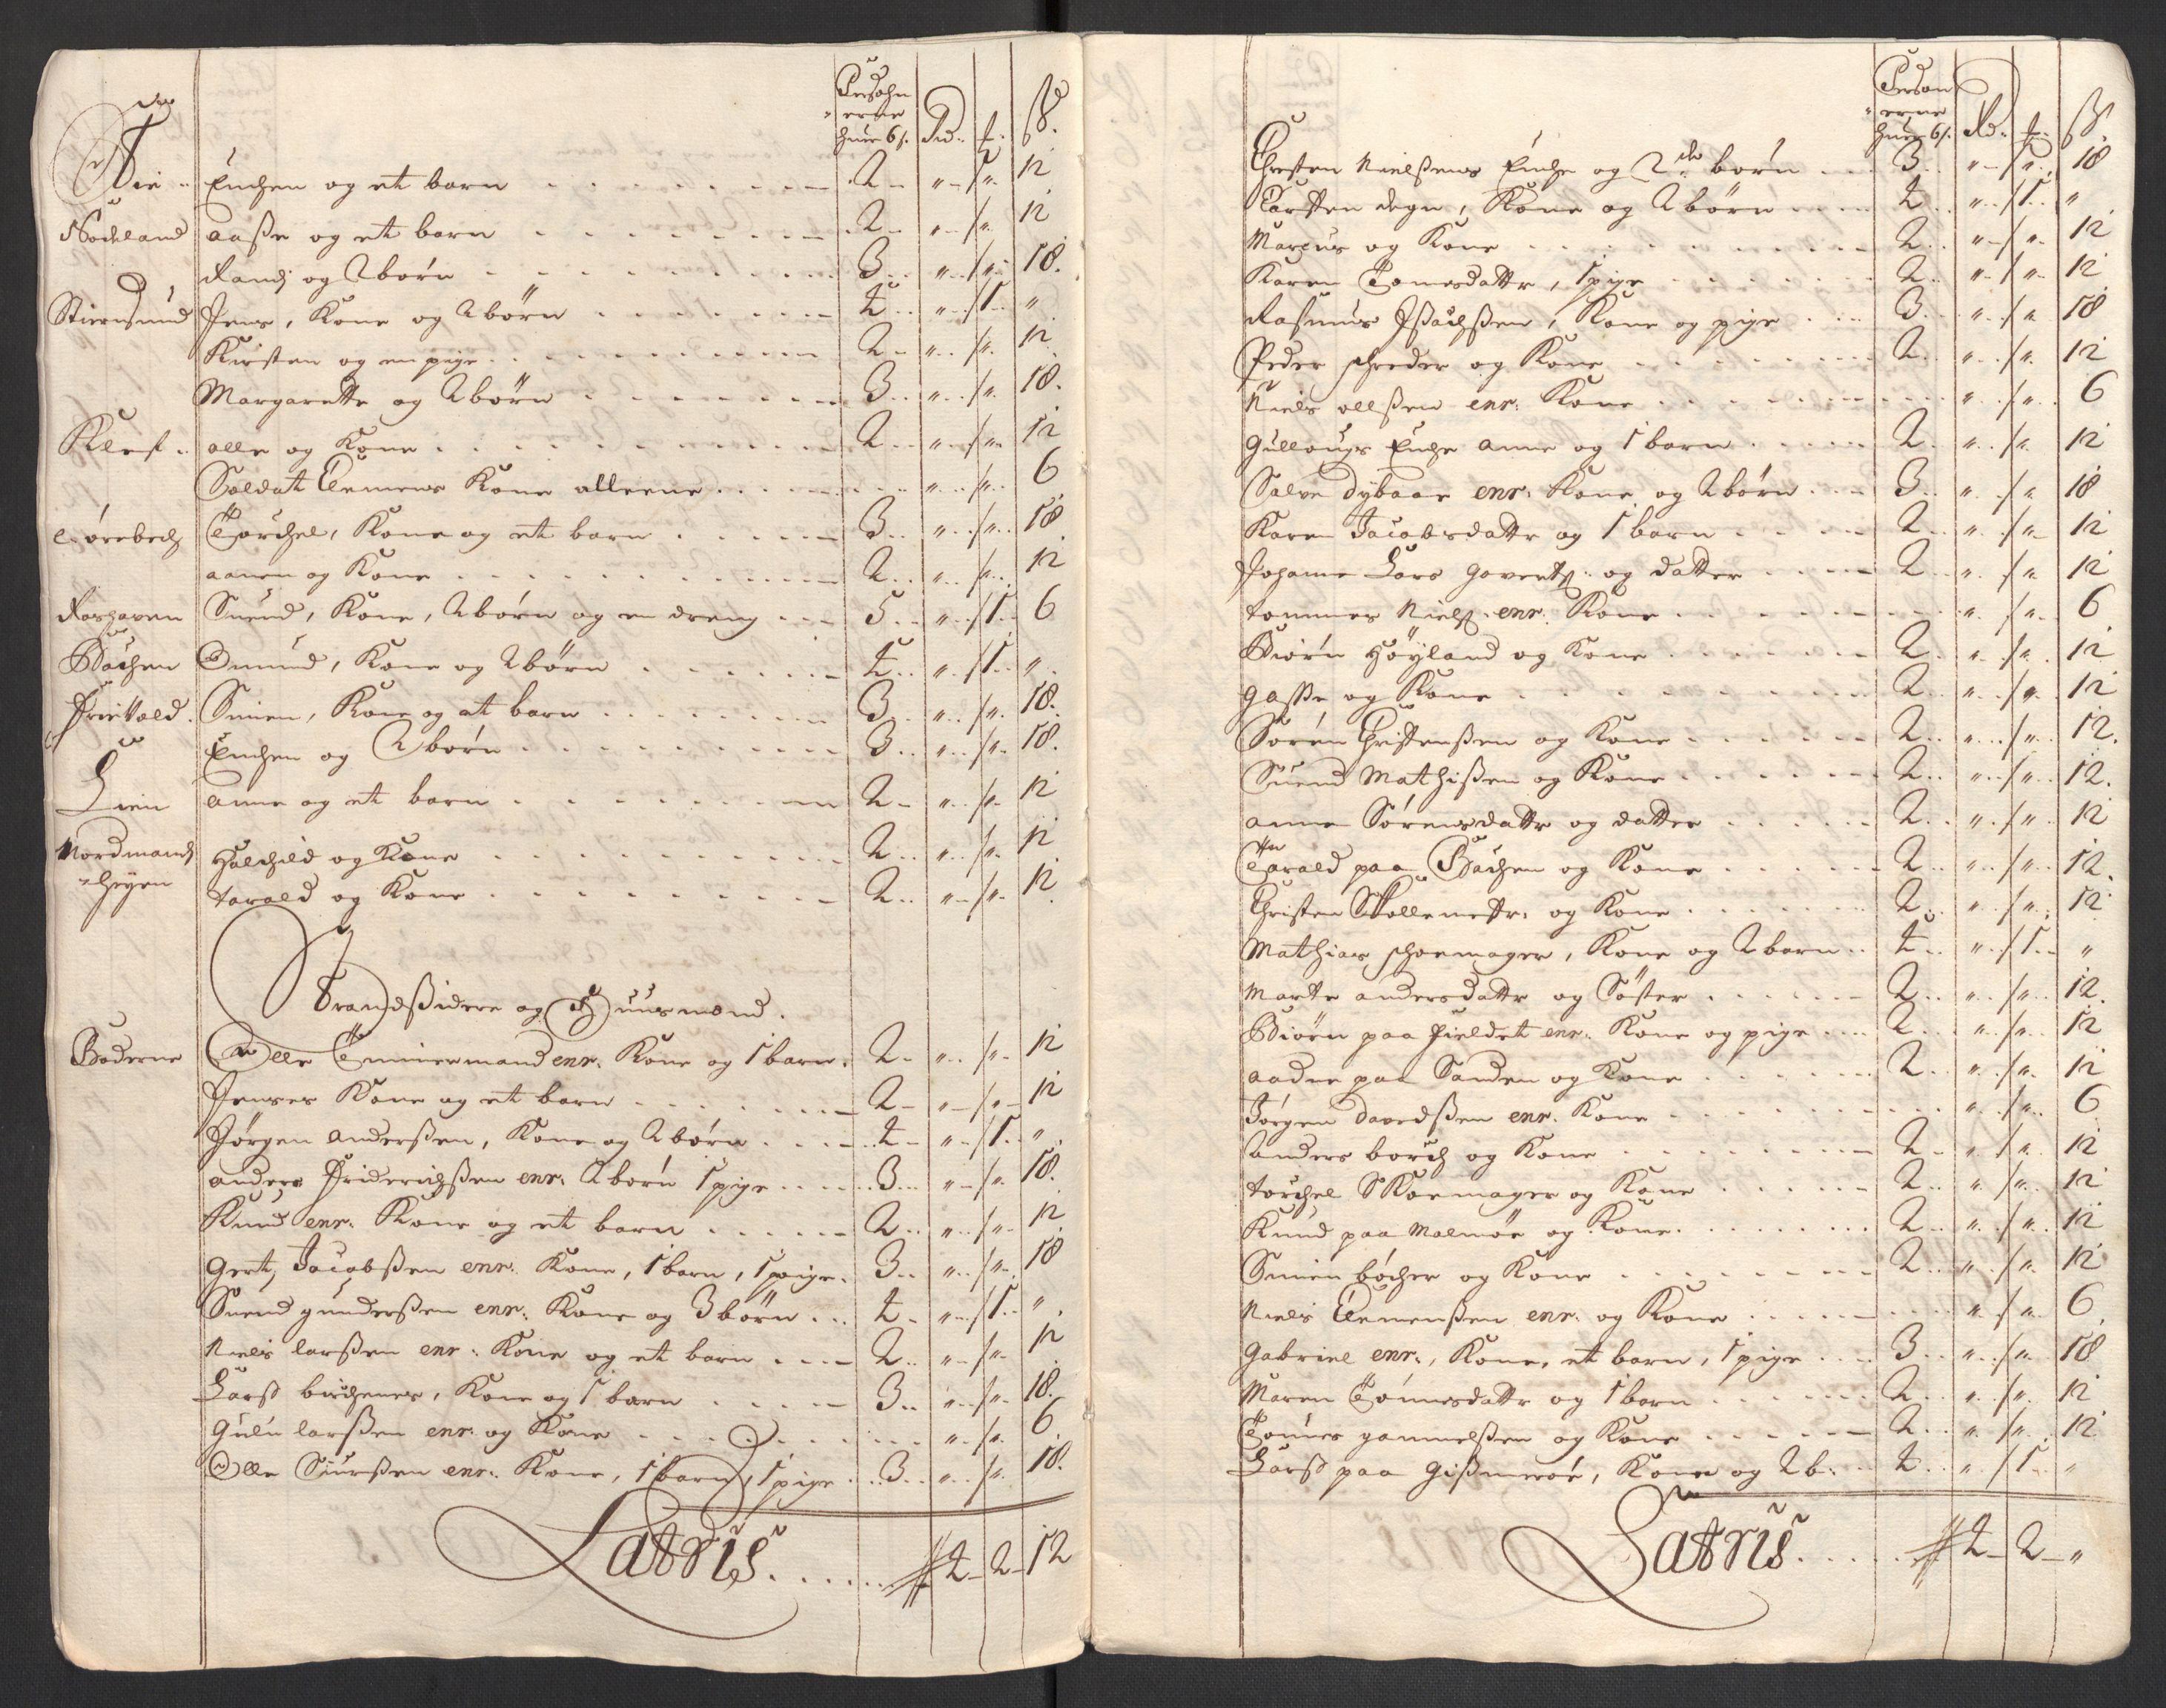 Persohn
erne
huer 6 s. Rd. ß.
Enchen og et barn 2 „ „ 12
aaße og et barn 2 „ „ 12
Randj og 2 börn 3 „ „ 18.
Stiernsund Jens, Kone og 2 börn 4 „ 1 „
Kirsten og en pige 2 „ „ 12
Margarette og 2 börn 3 „ „ 18.
Klef olle og Kone 2 „ „ 12
Soldat Clemens Kone alleene „ „ 6
Torchel, Kone og et barn 3 „ „ 18
aanen og Kone 2 „ „ 12
Roshaven Suend, Kone, 2 börn og en dreng 5 „ 1 6
Bachen Omund, Kone og 2 börn 4 „ 1 „
Frievold Simen, Kone og et barn 3 „ „ 18.
Enchen og 2 börn 3 „ „ 18.
Lien anne og et barn 2 „ „ 12
Nordmands Halchild og Kone 2 „ „ 12
heyen tarald og Kone 2 „ „ 12
Strandßidere og Huusmænd.
Boderne Olle Timmermand enr. Kone og 1 barn 2 „ „ 12
Jenses Kone og et barn 2 „ „ 12
Jörgen anderßen, Kone og 2 börn 4 „ 1 „
anders Friderichßen enr. 2 börn 1 pige 3 „ „ 18.
Knud enr. Kone og et barn 2 „ „ 12
Gert Jacobßen enr. Kone, 1 barn, 1 pige 3 „ „ 18
Suend gunderßen enr. Kone og 3 börn 4 „ 1 „
Niels larßen enr. Kone og et barn 2 „ „ 12
Larß birchenes, Kone og 1 barn 3 „ „ 18.
Gulu larßen enr. og Kone „ „ 6
Olle Siurßen enr. Kone, 1 barn, 1 pige 3 „ „ 18.
Latris 42 2 12
Person
erne
huer 6 s. Rd. ß.
Chresten Nielßens Enche og 2de börn 3 „ „ 18
Carsten degn, Kone og 2 börn 4 „ 1 „
Marcus og Kone 2 „ „ 12
Karen Tomesdattr, 1 pige 2 „ „ 12
Rasmus Jßachßen, Kone og pige 3 „ „ 18
Peder schreder og Kone 2 „ „ 12
Niels ollßen enr. Kone „ „ 6
Gullougs Enche anne og 1 barn 2 „ „ 12
Salve dybaae enr. Kone og 2 börn 3 „ „ 18
Karen Jacobsdattr og 1 barn 2 „ „ 12
Johanne Lars Goverts. og datter 2 „ „ 12
tommes Nielß. enr. Kone „ „ 6
Biörn Höyland og Kone 2 „ „ 12
Gasse og Kone 2 „ „ 12
Sören Christenßen og Kone 2 „ „ 12.
Suend Mathißen og Kone 2 „ „ 12.
anne Sörensdattr og datter 2 „ „ 12
Tarald paa Bachen og Kone 2 „ „ 12.
Christen Skollemestr. og Kone 2 „ „ 12
Mathias schoemager, Kone og 2 barn 4 „ 1 „
Marte andersdattr og Söster 2 „ „ 12.
Biörn paa Fieldet enr. Kone og pige 2 „ „ 12
aadne paa Sanden og Kone 2 „ „ 12
Jörgen davidßen enr. Kone „ „ 6
anders borch og Kone 2 „ „ 12
torchel Skoemager og Kone 2 „ „ 12
Knud paa Malmöe og Kone 2 „ „ 12
Simen böcher og Kone 2 „ „ 12
Niels Clemenßen enr. og Kone „ „ 6
Gabriel enr., Kone, et barn, 1 pige 3 „ „ 18
Maren Tönnesdattr og 1 barn 2 „ „ 12
Tönnes gammelßen og Kone 2 „ „ 12
Larß paa Gißmeröe, Kone og 2 b. 4 „ 1 „
Latris 42 2 „